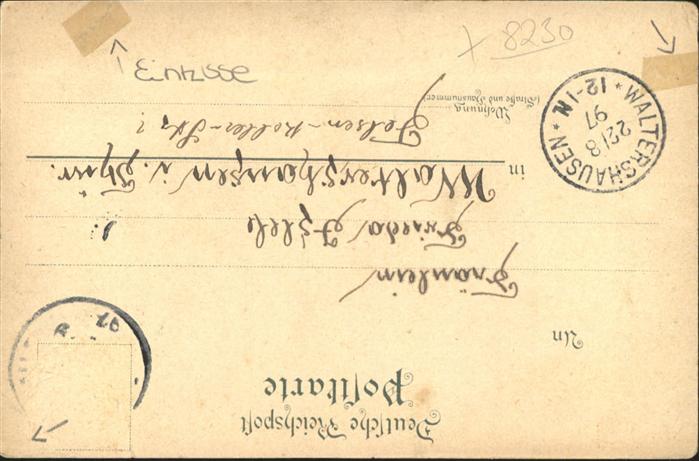 Deutsche Reichspost
Postkarte
An
Fräulein
Frieda
in Waltershausen i. Thür.
Wohnung
(Straße und Hausnummer)
Felsen-Keller-Str. 2
WALTERSHAUSEN
22/8
97
12-1N.
97
EINRISSE
x 8230